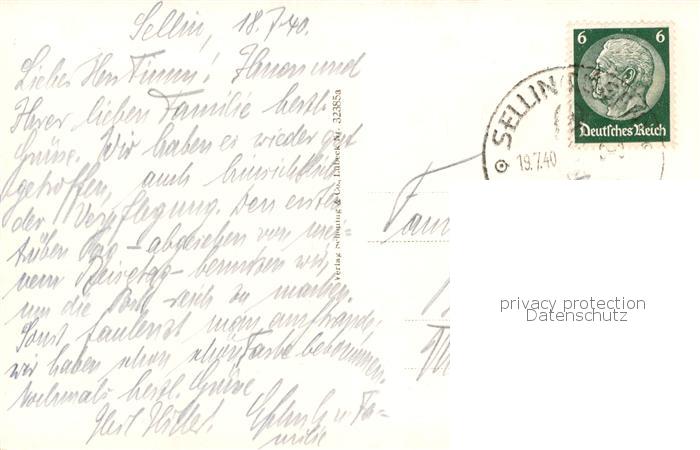 Sellin, 18.7.40.
Lieber Herr Timm! Ihnen und
Ihrer lieben Familie herzl.
Grüße. Wir haben es wieder gut
getroffen, auch hinsichtlich
der Verpflegung. Den ersten
trüben Tag - abgesehen von
Reisetag - benutzen wir,
um die Post zu machen.
Sonst faulenzt man am Strande.
wir haben schon Farbe bekommen.
Nochmals herzl. Grüße
Heil Hitler. u. Fa-
milie
Verlag Schöning & Co., Lübeck Nr. 32385a
6 6
Deutsches Reich
SELLIN
19.7.40
Fam
privacy protection
Datenschutz